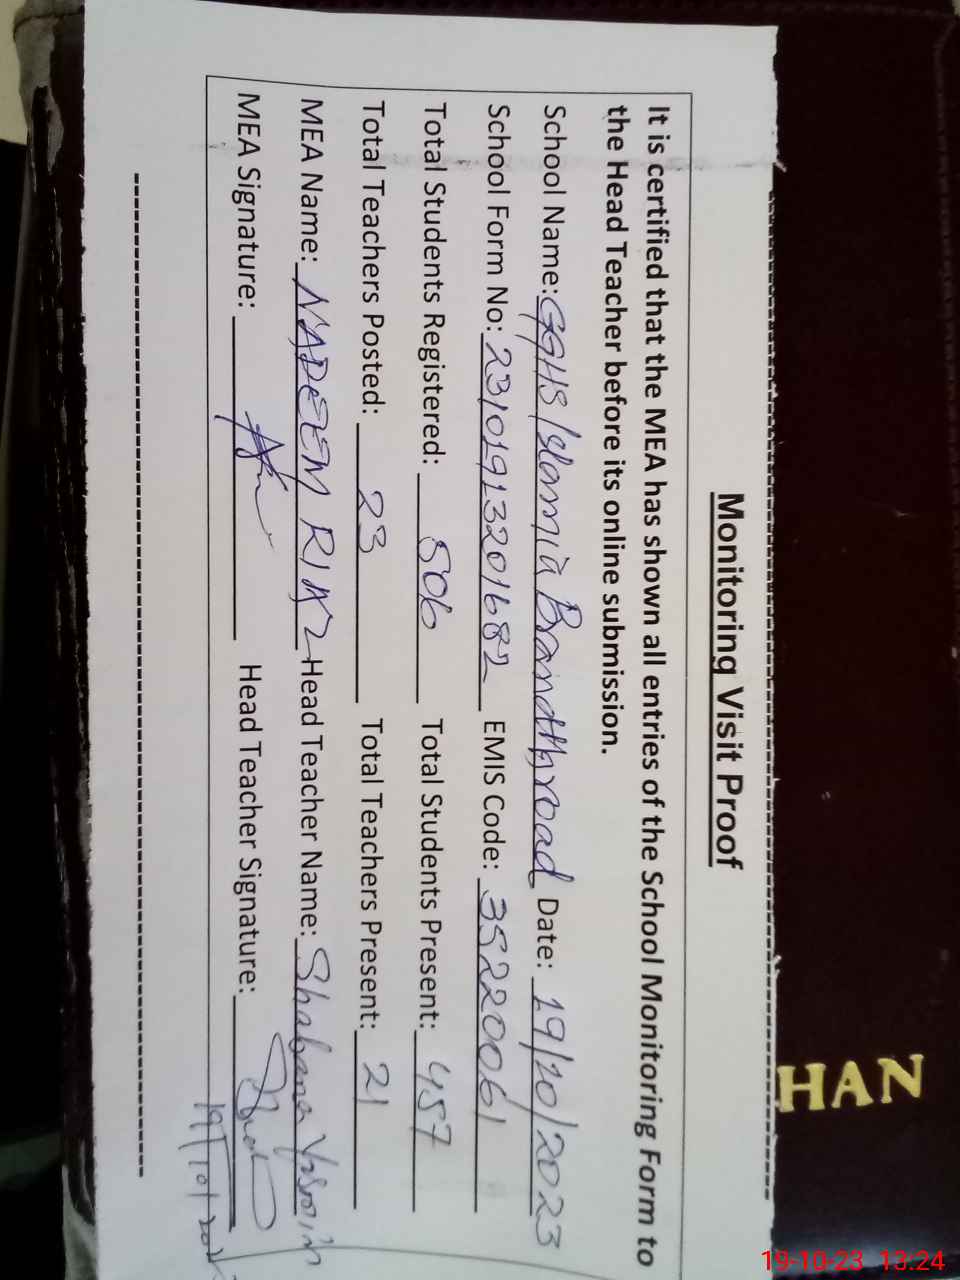 Monitoring Visit Proof
It is certified that the MEA has shown all entries of the School Monitoring Form to
the Head Teacher before its online submission.
School Name: GGHS Islamia Brandthroad Date: 19/10/2023
School Form No: 23101913201682 EMIS Code: 35220061
Total Students Registered: 506 Total Students Present: 457
Total Teachers Posted: 23 Total Teachers Present: 21
MEA Name: NADEEM RIAZ Head Teacher Name: Shabana Yasmin
MEA Signature: Head Teacher Signature:
19/10/202
HAN
19-10-23 13:24